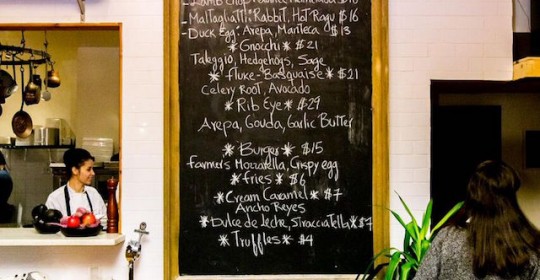 - Lamb Chop
- Maltagliati: Rabbit, Hot Ragu $16
- Duck Egg: Arepa, Manteca $13
* Gnocchi * $21
Taleggio, Hedgehogs, Sage
* Fluke-Basquaise * $21
Celery Root, Avocado
* Rib Eye * $29
Arepa, Gouda, Garlic Butter
* Burger * $15
Farmer's Mozzarella, Crispy egg
* fries * $6
* Cream Caramel * $7
Ancho Reyes
* Dulce de Leche, Stracciatella * $7
* Truffles * $4